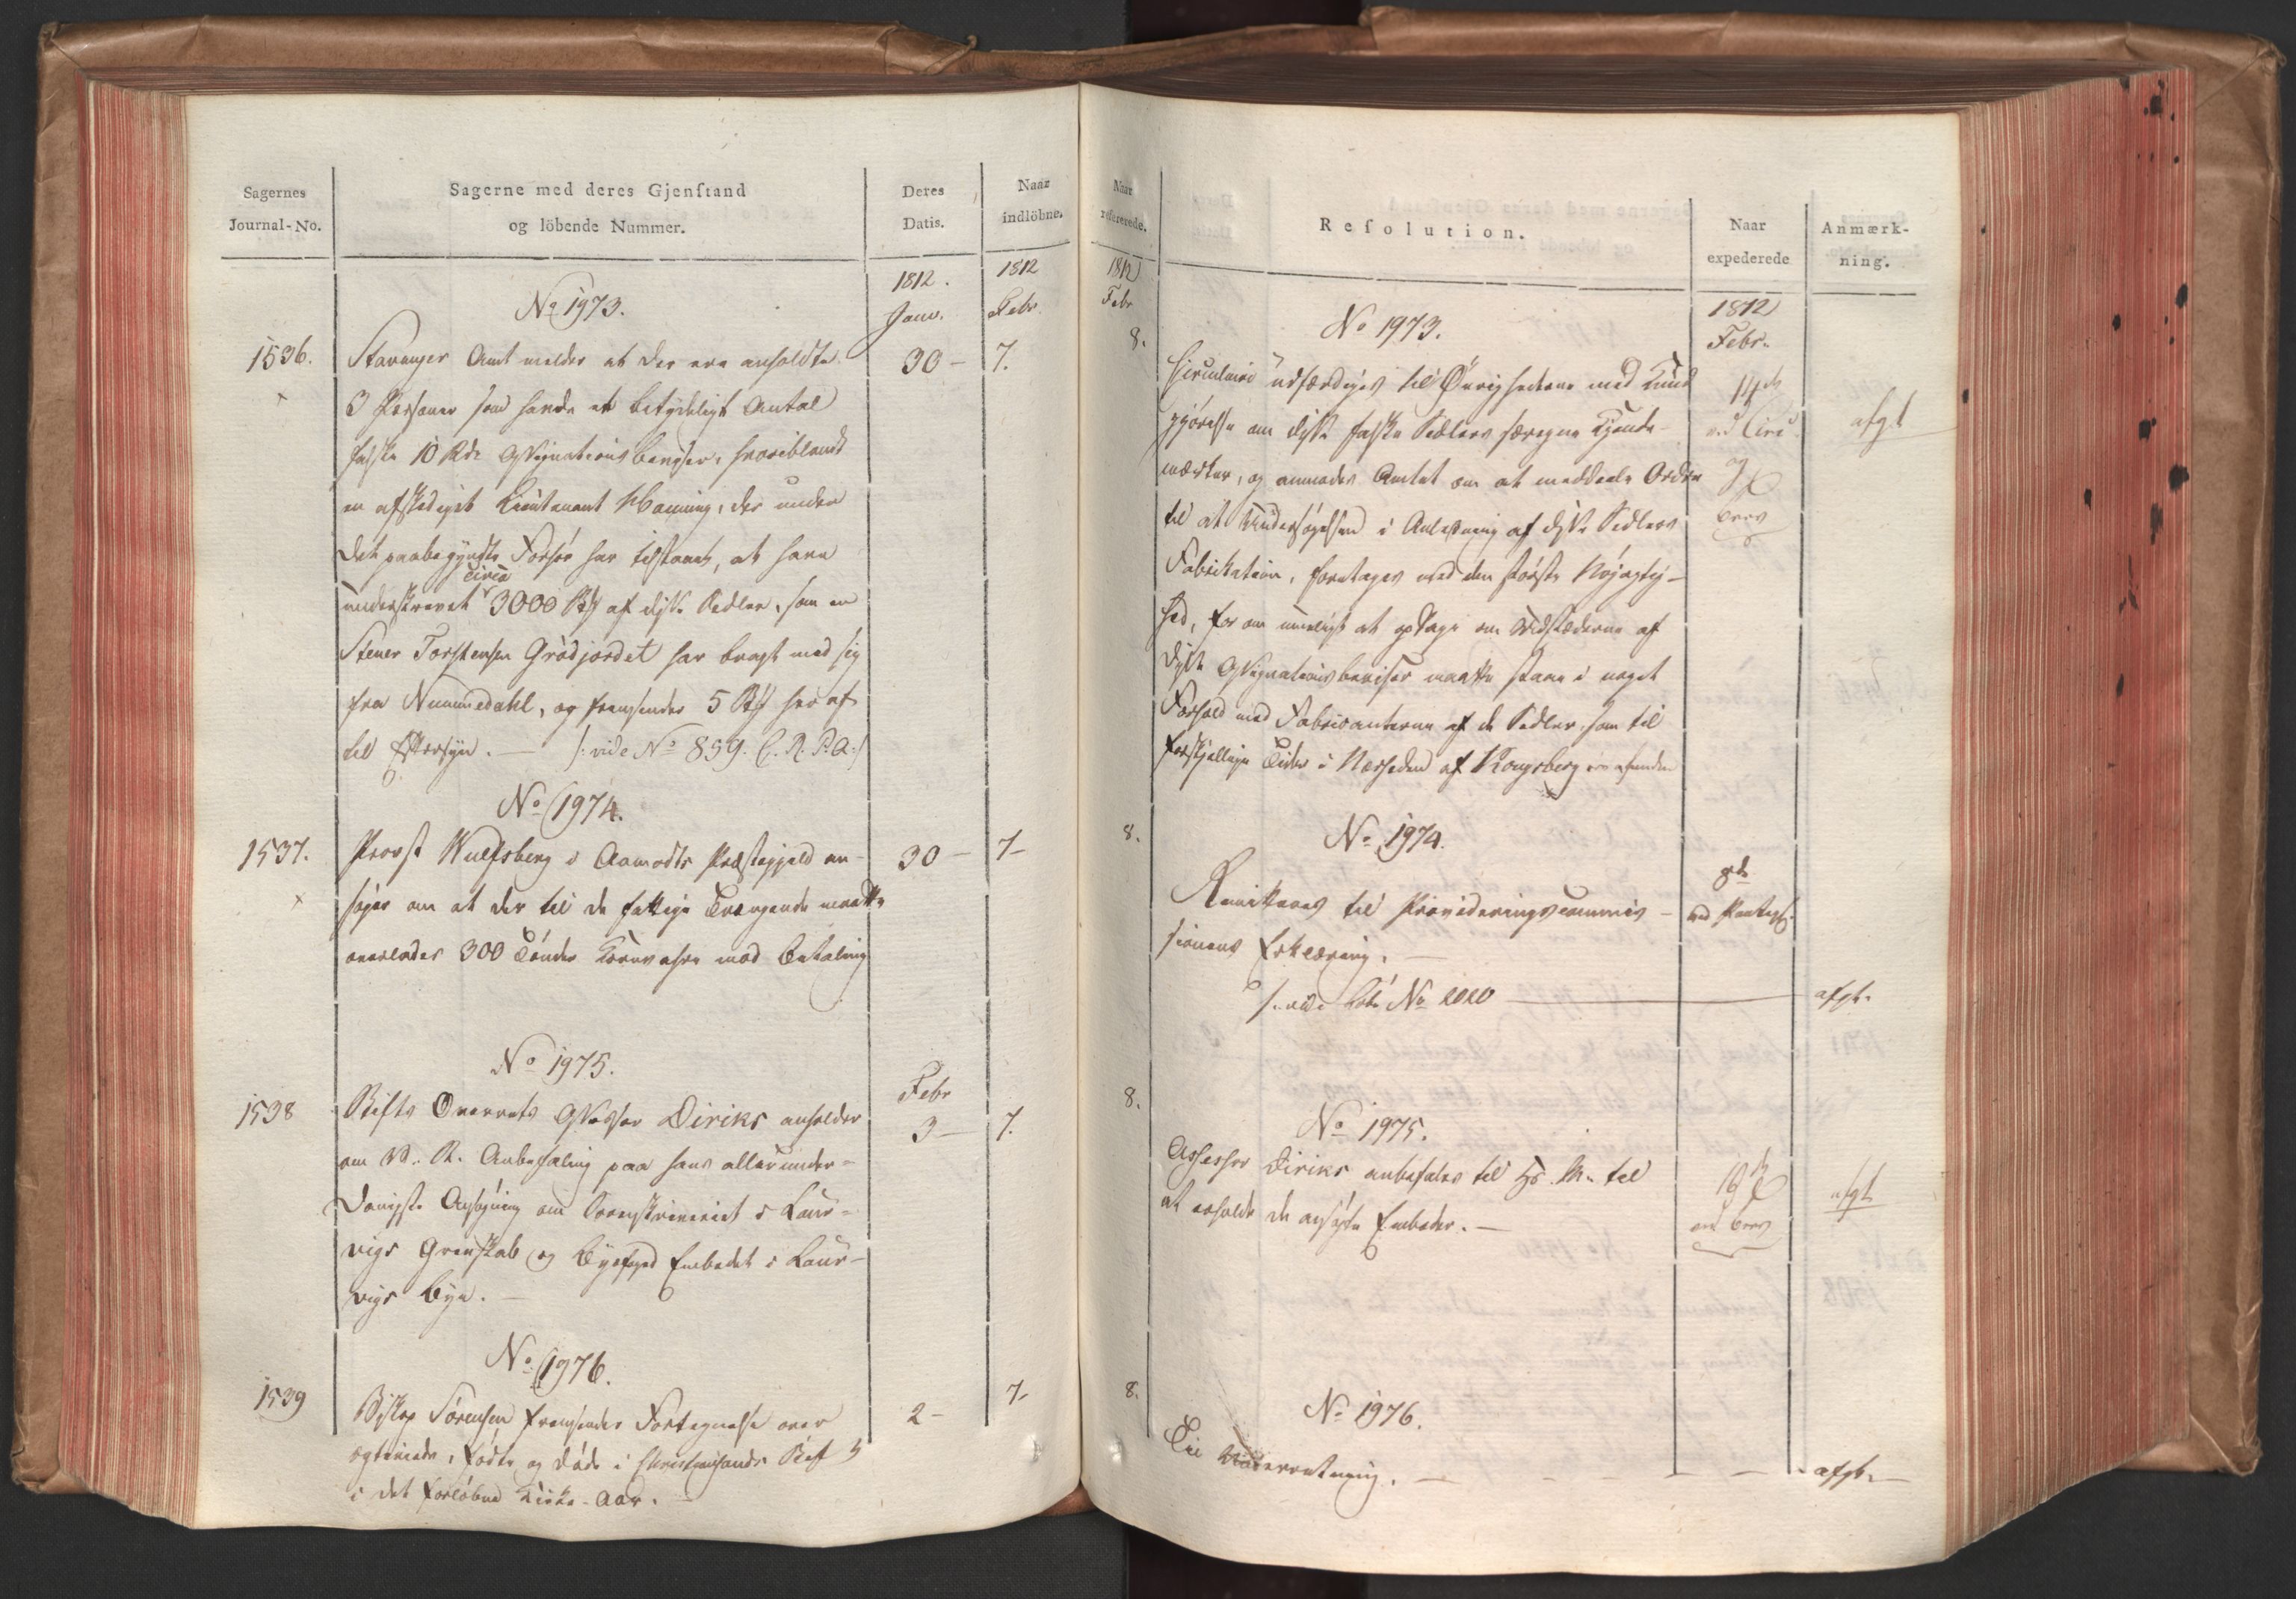 Sagernes
Journal-No.
Sagerne med deres Gjenſtand
og löbende Nummer.
Deres
Datis.
Naar
indlöbne.
1812.
Janv.
1812
Febr.
No 1973.
1536.
Stavanger Amt melder at der ere anholdte
30 –
7.
3 Personer som havde et betydeligt Antal
falske 10 Rdr Assignationsbeviser, hvoriblandt
en afskediget Lieutenant Harning, der under
det paabegyndte Forhør har tilstaaet, at have
circa
underskrevet 3000 st af disse Sedler, som en
Stener Torstensen Grödjordet har bragt med sig
fra Nummedahl, og fremsender 5 st heraf
til Eftersyn. — /: vide No 859. C. R. P. A :/
No 1974.
1537.
Provst Wulfsberg i Aamodts Præstegjeld an-
30 –
7 –
søger om at der til de fattige Trængende maatte
overlades 300 Tönder Kornvahre mod Betaling
No 1975.
Febr
1538
Stifts Overrets Assessor Diriks anholder
3 –
7.
om V. R. Anbefaling paa hans allerunder-
danigste Ansøgning om Sorenskriveriet i Laur-
vigs Grevskab og Byefoged Embedet i Laur-
vigs Bye. —
No 1976.
1539
Biskop Sörensen fremsender Fortegnelse over
2 –
7 –
ægteviede, fødte og døde i Christiansands Stift
i det forløbne Kirke-Aar. —
Naar
refererede.
Reſolution.
Naar
expederede
Anmærk-
ning.
1812
Febr
1812
Febr.
8.
No 1973.
Circulaire udfærdiges til Øvrighederne med Kund
gjörelse om disse falske Sedlers særegne Kjende-
14de
ved Circ.
afgt
mærker, og anmodes Amtet om at meddeele Ordre
og
til at Undersøgelsen i Anledning af disse Sedlers
Brev
Fabrikation, foretages med den største Nøjagtig-
hed, for om mueligt at opdage om Udstæderne af
disse Assignationsbeviser maatte staae i noget
Forhold med Fabricanterne af de Sedler, som til
forskjellige Tider i Nærheden af Kongsberg ere fundne
8.
No 1974.
Remitteres til Provideringscommis-
ved Paategn.
sionens Erklæring. —
/: vide Löbe No 2020 —
afgt.
8.
No 1975.
Assessor Diriks anbefales til Hs. M. til
19de
afgt
at erholde de ansøgte Embeder. —
ved Brev
8.
No 1976.
Til Underretning. — – – – afgt. –